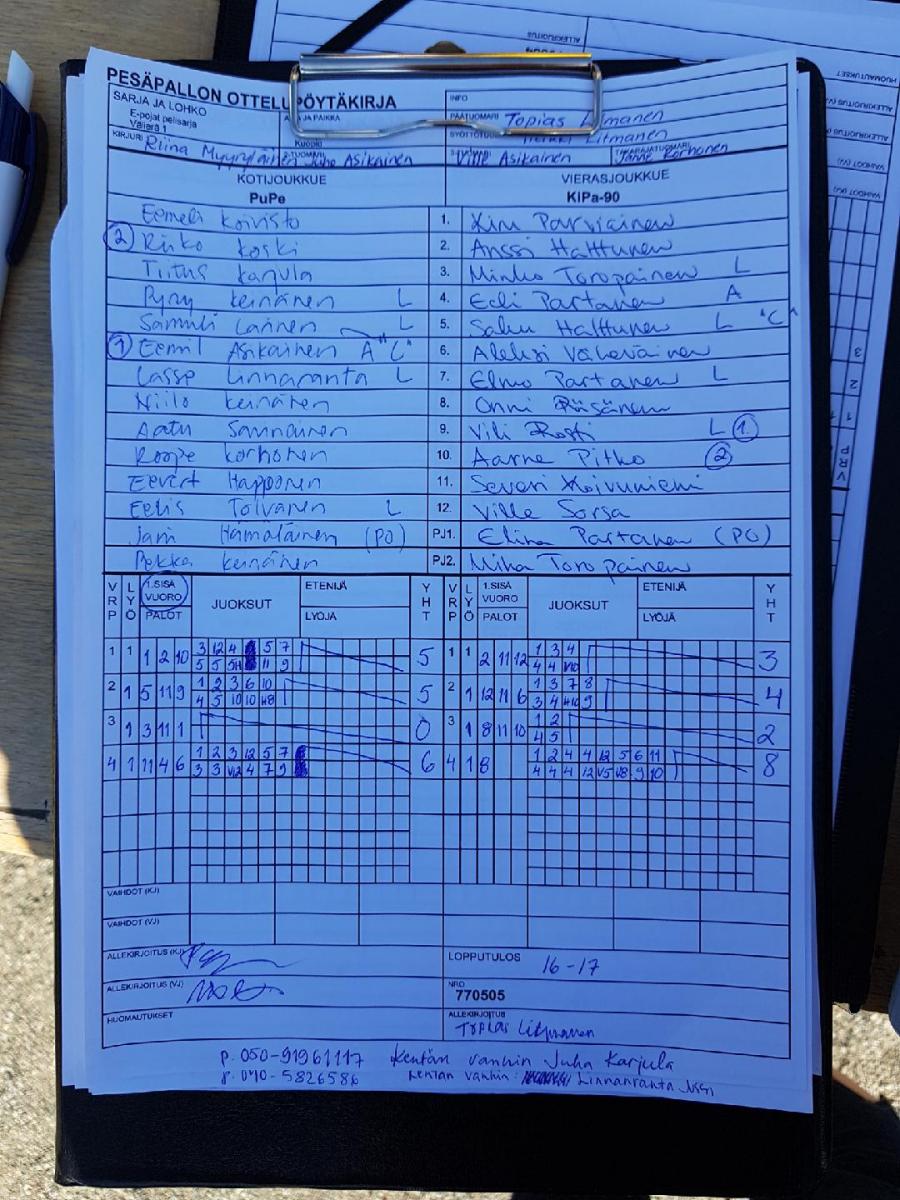 PESÄPALLON OTTELUPÖYTÄKIRJA
SARJA JA LOHKO
E-pojat pelisarja
Välierä 1
AIKA JA PAIKKA
Kuopio
INFO
PÄÄTUOMARI Topias Litmanen
SYÖTTÖTUOMARI Litmanen
KIRJURI Riina Myyryläinen
2-TUOMARI Juho Asikainen
3-TUOMARI Ville Asikainen
TAKARAJATUOMARI Janne Korhonen
KOTIJOUKKUE VIERASJOUKKUE
PuPe KiPa-90
Eemeli Koivisto 1. Kim Parviainen
2 Risko Koski 2. Anssi Halttunen
Tiitus Karjula 3. Minko Toropainen L
Pyry Keinänen L 4. Eeli Partanen A
Samuli Lainen L 5. Saku Halttunen L "C"
1 Eemil Asikainen A "C" 6. Aleksi Väheväinen
Lasse Linnaranta L 7. Elmo Partanen L
Niilo Keinänen 8. Onni Räsänen
Aatu Sannainen 9. Vili Rosti L 1.
Roope Korhonen 10. Aarne Pitko 2
Eevert Happonen 11. Severi Koivuniemi
Eelis Tolvanen L 12. Ville Sorsa
Jani Hämäläinen (PO) PJ1. Elina Partanen (PO)
Pekka Keinänen PJ2. Miha Toropainen
VRP LYÖ 1.SISÄ VUORO PALOT JUOKSUT ETENIJÄ LYÖJÄ YHT VRP LYÖ 1.SISÄ VUORO PALOT JUOKSUT ETENIJÄ LYÖJÄ YHT
1 1 1 2 10 3 12 4 5 7 5 1 1 2 11 12 1 3 4 3
5 5 5H 11 9 4 4 V10
2 1 5 11 9 1 2 3 6 10 5 2 1 12 11 6 1 3 7 8 4
4 5 10 10 H8 3 4 H10 9
3 1 3 11 1 0 3 1 8 11 10 1 2 2
4 5
4 1 11 4 6 1 2 3 12 5 7 6 4 1 8 1 2 4 4 12 5 6 11 8
3 3 V12 4 7 9 4 4 4 12 V5 V8 9 10
VAIHDOT (KJ)
VAIHDOT (VJ)
ALLEKIRJOITUS (KJ)
LOPPUTULOS 16-17
ALLEKIRJOITUS (VJ)
NRO
770505
HUOMAUTUKSET
ALLEKIRJOITUS
Topias Litmanen
p. 050-91961117 Kentän vanhin Juha Karjula
p. 040-5826586 Kentän vanhin: Linnanranta Jussi